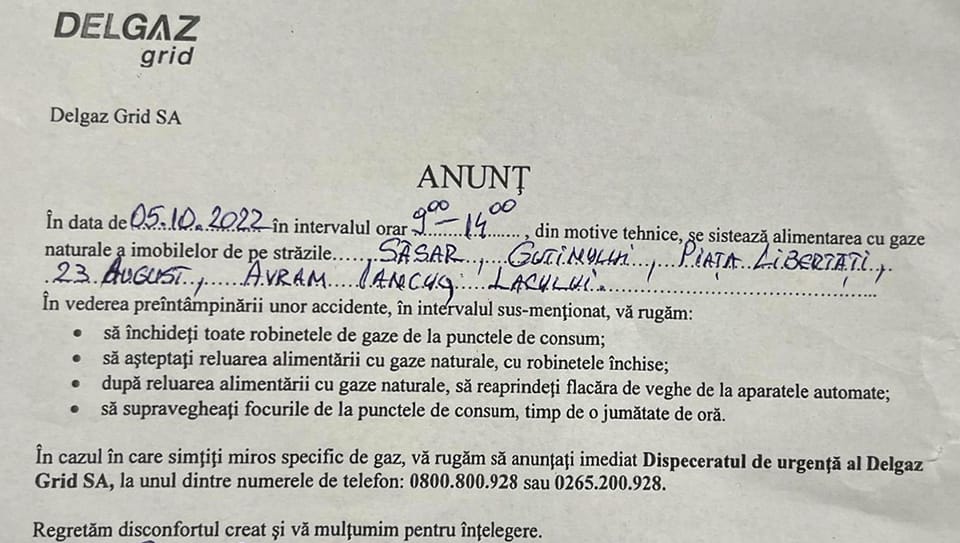 DELGAZ
grid
Delgaz Grid SA
ANUNȚ
În data de 05.10.2022 în intervalul orar 9⁰⁰ – 14⁰⁰ , din motive tehnice, se sistează alimentarea cu gaze
naturale a imobilelor de pe străzile....., SĂSAR, GUTINULUI, PIAȚA LIBERTĂȚI,
23 AUGUST, AVRAM IANCU, LACULUI.
În vederea preîntâmpinării unor accidente, în intervalul sus-menționat, vă rugăm:
• să închideți toate robinetele de gaze de la punctele de consum;
• să așteptați reluarea alimentării cu gaze naturale, cu robinetele închise;
• după reluarea alimentării cu gaze naturale, să reaprindeți flacăra de veghe de la aparatele automate;
• să supravegheați focurile de la punctele de consum, timp de o jumătate de oră.
În cazul în care simțiți miros specific de gaz, vă rugăm să anunțați imediat Dispeceratul de urgență al Delgaz
Grid SA, la unul dintre numerele de telefon: 0800.800.928 sau 0265.200.928.
Regretăm disconfortul creat și vă mulțumim pentru înțelegere.